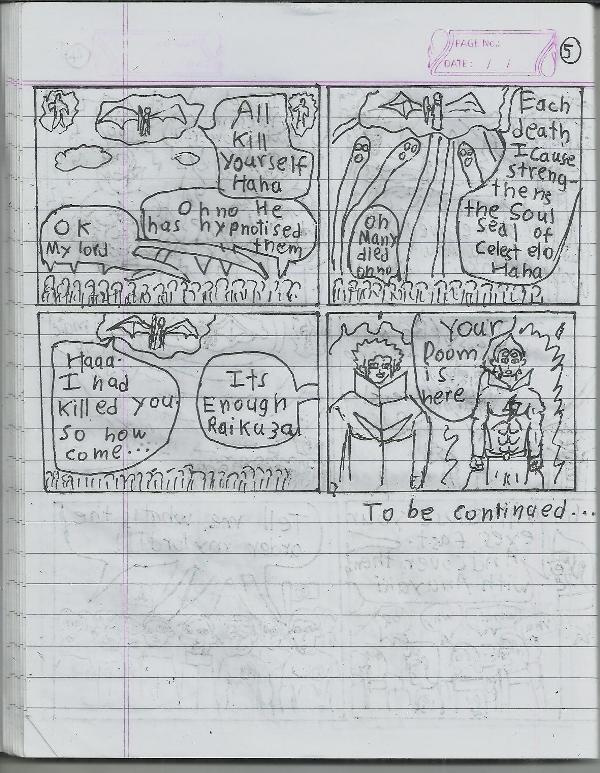 PAGE No.:
DATE: / /
5
All
Kill
yourself
Haha
Oh no He
has hypnotised
them
OK
My lord
Each
death
I Cause
streng-
thens
the Soul
Seal of
Celestelo
Haha
Oh
Many
died
oh no
Haaa-
I had
killed you
so how
come...
Its
Enough
Raikuza
your
Doom
is
here
To be continued...